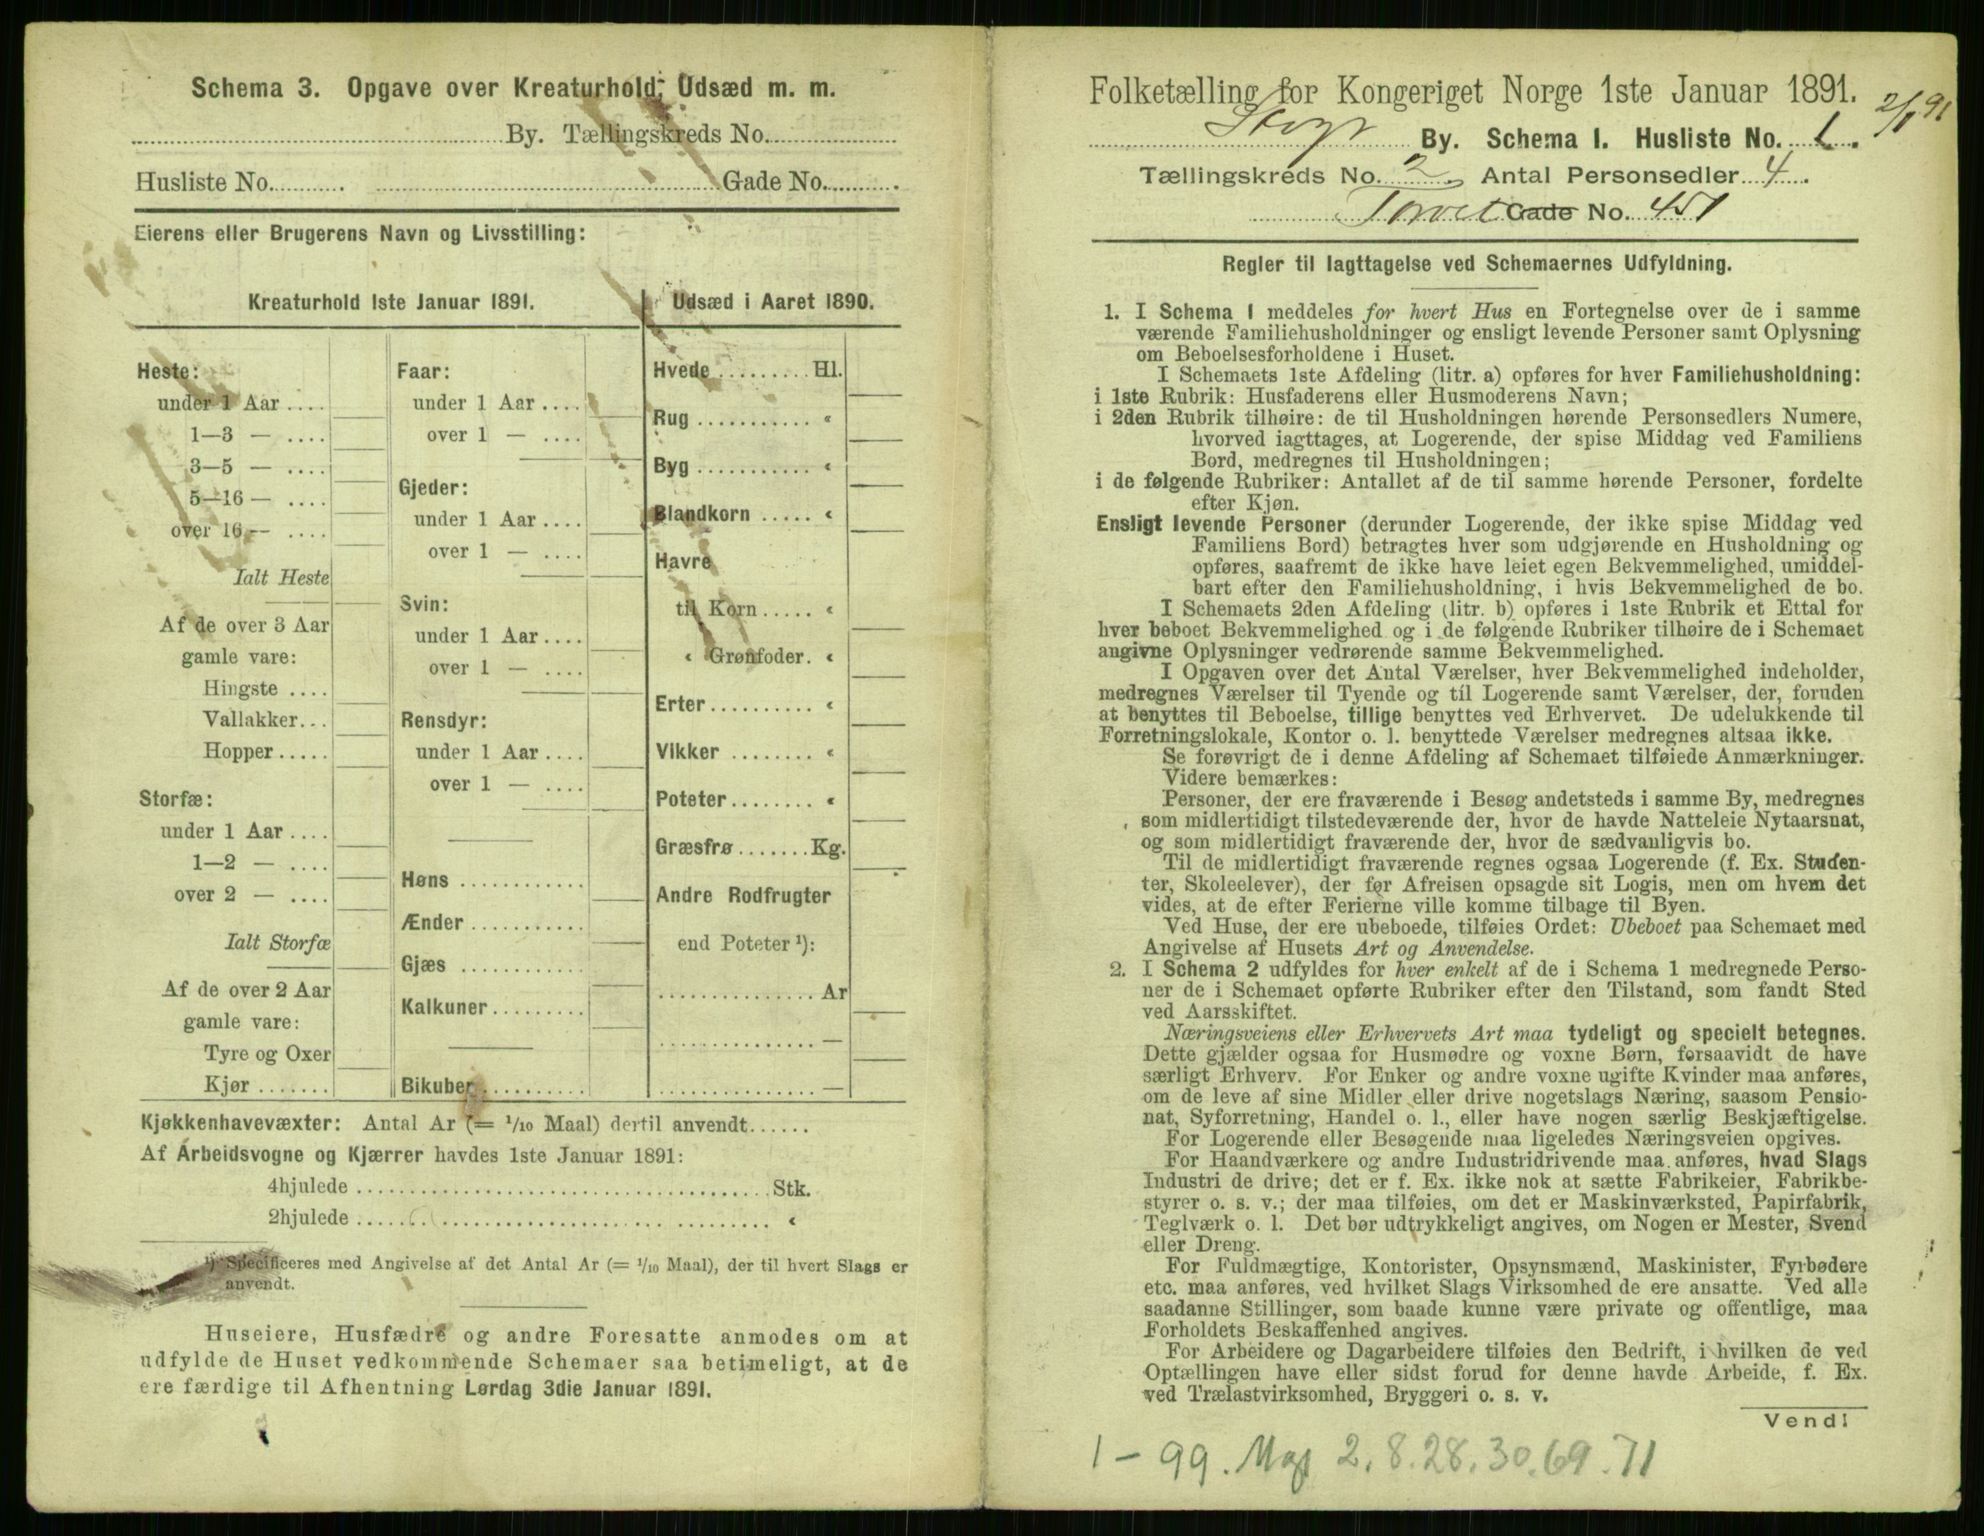 Schema 3. Opgave over Kreaturhold, Udsæd m. m.
By. Tællingskreds No.
Husliste No. Gade No.
Eierens eller Brugerens Navn og Livsstilling:
Kreaturhold 1ste Januar 1891.
Heste:
under 1 Aar
1—3 —
3—5 —
5—16 —
over 16 —
Ialt Heste
Af de over 3 Aar
gamle vare:
Hingste
Vallakker
Hopper
Storfæ:
under 1 Aar
1—2 —
over 2 —
Ialt Storfæ
Af de over 2 Aar
gamle vare:
Tyre og Oxer
Kjør
Faar:
under 1 Aar
over 1 —
Gjeder:
under 1 Aar
over 1 —
Svin:
under 1 Aar
over 1 —
Rensdyr:
under 1 Aar
over 1 —
Høns
Ænder
Gjæs
Kalkuner
Bikuber
Udsæd i Aaret 1890.
Hvede Hl.
Rug «
Byg «
Blandkorn «
Havre
til Korn «
« Grønfoder. «
Erter «
Vikker «
Poteter «
Græsfrø Kg.
Andre Rodfrugter
end Poteter ¹):
Ar
—
—
Kjøkkenhavevæxter: Antal Ar (= 1/10 Maal) dertil anvendt
Af Arbeidsvogne og Kjærrer havdes 1ste Januar 1891:
4hjulede Stk.
2hjulede «
¹) Specificeres med Angivelse af det Antal Ar (= 1/10 Maal), der til hvert Slags er
anvendt.
Huseiere, Husfædre og andre Foresatte anmodes om at
udfylde de Huset vedkommende Schemaer saa betimeligt, at de
ere færdige til Afhentning Lørdag 3die Januar 1891.
Folketælling for Kongeriget Norge 1ste Januar 1891.
2/1 91
By. Schema I. Husliste No. 1.
Tællingskreds No. 2 Antal Personsedler 4
Torvet Gade No. 451
Regler til Iagttagelse ved Schemaernes Udfyldning.
1. I Schema 1 meddeles for hvert Hus en Fortegnelse over de i samme
værende Familiehusholdninger og ensligt levende Personer samt Oplysning
om Beboelsesforholdene i Huset.
I Schemaets 1ste Afdeling (litr. a) opføres for hver Familiehusholdning:
i 1ste Rubrik: Husfaderens eller Husmoderens Navn;
i 2den Rubrik tilhøire: de til Husholdningen hørende Personsedlers Numere,
hvorved iagttages, at Logerende, der spise Middag ved Familiens
Bord, medregnes til Husholdningen;
i de følgende Rubriker: Antallet af de til samme hørende Personer, fordelte
efter Kjøn.
Ensligt levende Personer (derunder Logerende, der ikke spise Middag ved
Familiens Bord) betragtes hver som udgjørende en Husholdning og
opføres, saafremt de ikke have leiet egen Bekvemmelighed, umiddel-
bart efter den Familiehusholdning, i hvis Bekvemmelighed de bo.
I Schemaets 2den Afdeling (litr. b) opføres i 1ste Rubrik et Ettal for
hver beboet Bekvemmelighed og i de følgende Rubriker tilhøire de i Schemaet
angivne Oplysninger vedrørende samme Bekvemmelighed.
I Opgaven over det Antal Værelser, hver Bekvemmelighed indeholder,
medregnes Værelser til Tyende og til Logerende samt Værelser, der, foruden
at benyttes til Beboelse, tillige benyttes ved Erhvervet. De udelukkende til
Forretningslokale, Kontor o. l. benyttede Værelser medregnes altsaa ikke.
Se forøvrigt de i denne Afdeling af Schemaet tilføiede Anmærkninger.
Videre bemærkes:
Personer, der ere fraværende i Besøg andetsteds i samme By, medregnes
som midlertidigt tilstedeværende der, hvor de havde Natteleie Nytaarsnat,
og som midlertidigt fraværende der, hvor de sædvanligvis bo.
Til de midlertidigt fraværende regnes ogsaa Logerende (f. Ex. Studen-
ter, Skoleelever), der før Afreisen opsagde sit Logis, men om hvem det
vides, at de efter Ferierne ville komme tilbage til Byen.
Ved Huse, der ere ubeboede, tilføies Ordet: Ubeboet paa Schemaet med
Angivelse af Husets Art og Anvendelse.
2. I Schema 2 udfyldes for hver enkelt af de i Schema 1 medregnede Perso-
ner de i Schemaet opførte Rubriker efter den Tilstand, som fandt Sted
ved Aarsskiftet.
Næringsveiens eller Erhvervets Art maa tydeligt og specielt betegnes.
Dette gjælder ogsaa for Husmødre og voxne Børn, forsaavidt de have
særligt Erhverv. For Enker og andre voxne ugifte Kvinder maa anføres,
om de leve af sine Midler eller drive nogetslags Næring, saasom Pensio-
nat, Syforretning, Handel o. l., eller have nogen særlig Beskjæftigelse.
For Logerende eller Besøgende maa ligeledes Næringsveien opgives.
For Haandværkere og andre Industridrivende maa anføres, hvad Slags
Industri de drive; det er f. Ex. ikke nok at sætte Fabrikeier, Fabrikbe-
styrer o. s. v.; der maa tilføies, om det er Maskinværksted, Papirfabrik,
Teglværk o. l. Det bør udtrykkeligt angives, om Nogen er Mester, Svend
eller Dreng.
For Fuldmægtige, Kontorister, Opsynsmænd, Maskinister, Fyrbødere
etc. maa anføres, ved hvilket Slags Virksomhed de ere ansatte. Ved alle
saadanne Stillinger, som baade kunne være private og offentlige, maa
Forholdets Beskaffenhed angives.
For Arbeidere og Dagarbeidere tilføies den Bedrift, i hvilken de ved
Optællingen have eller sidst forud for denne havde Arbeide, f. Ex.
ved Trælastvirksomhed, Bryggeri o. s. v.
Vend!
1 - 99. 2. 8. 28. 30. 69. 71